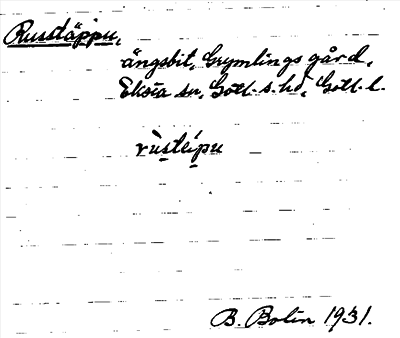 Russtäppu,
ängsbit, Grymlings gård,
Eksta sn, Gotl. s. hd, Gotl. l.
rùsteipu
B. Bolin 1931.